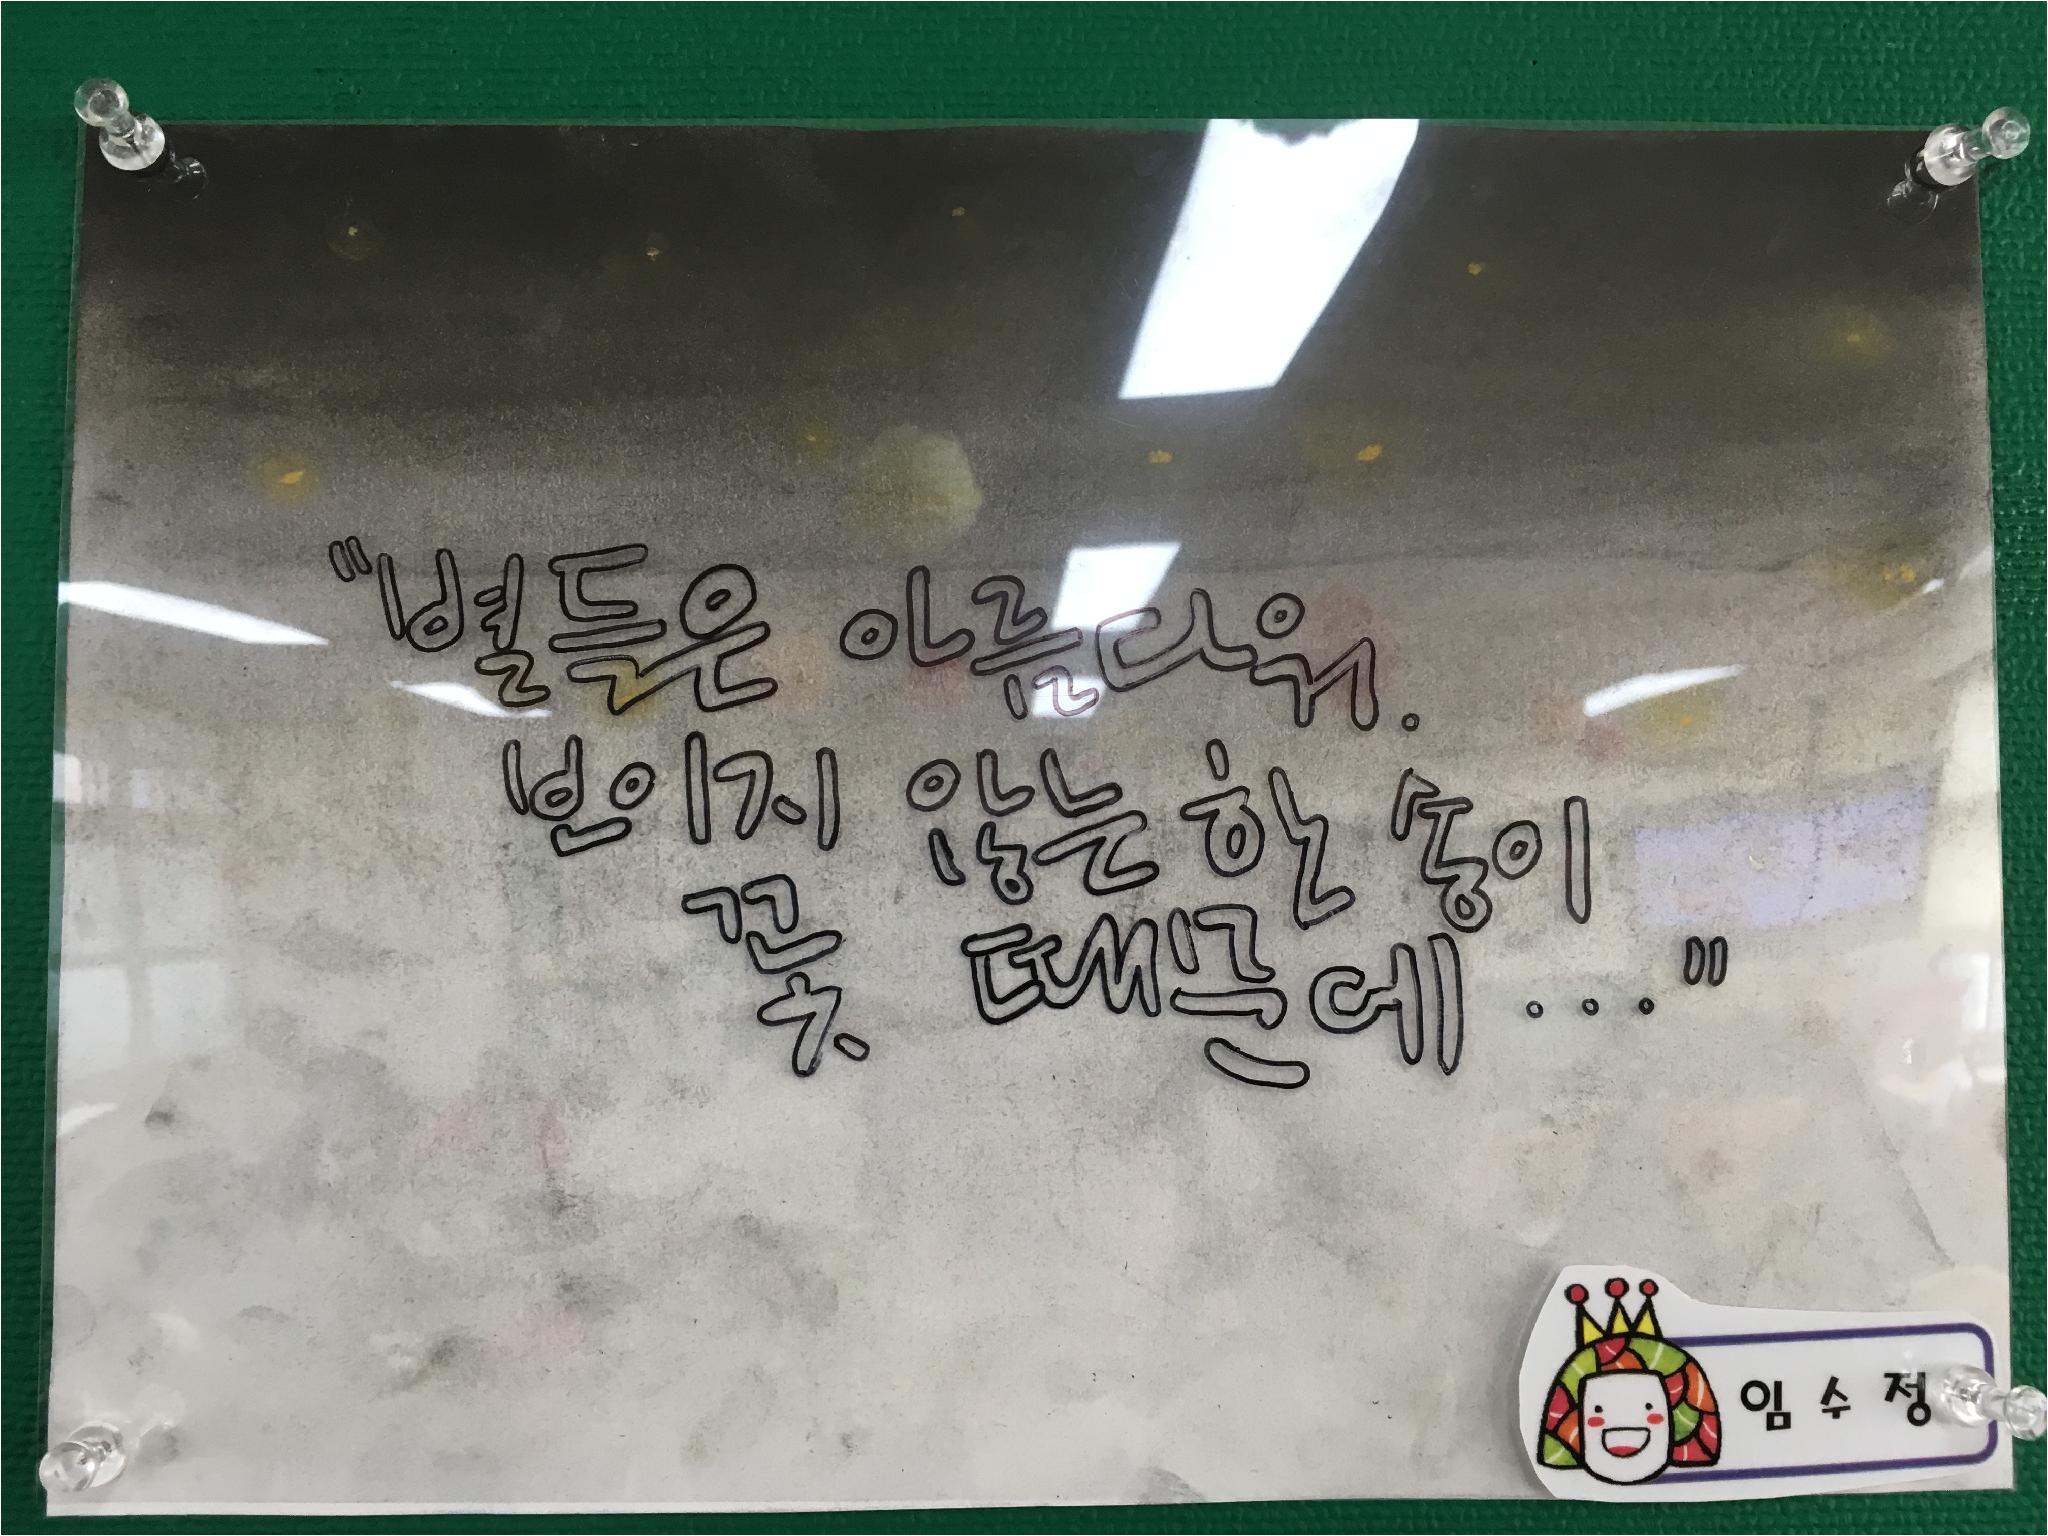 "별들은 아름다워.
보이지 않는 한 송이
꽃 때문에..."
임수정